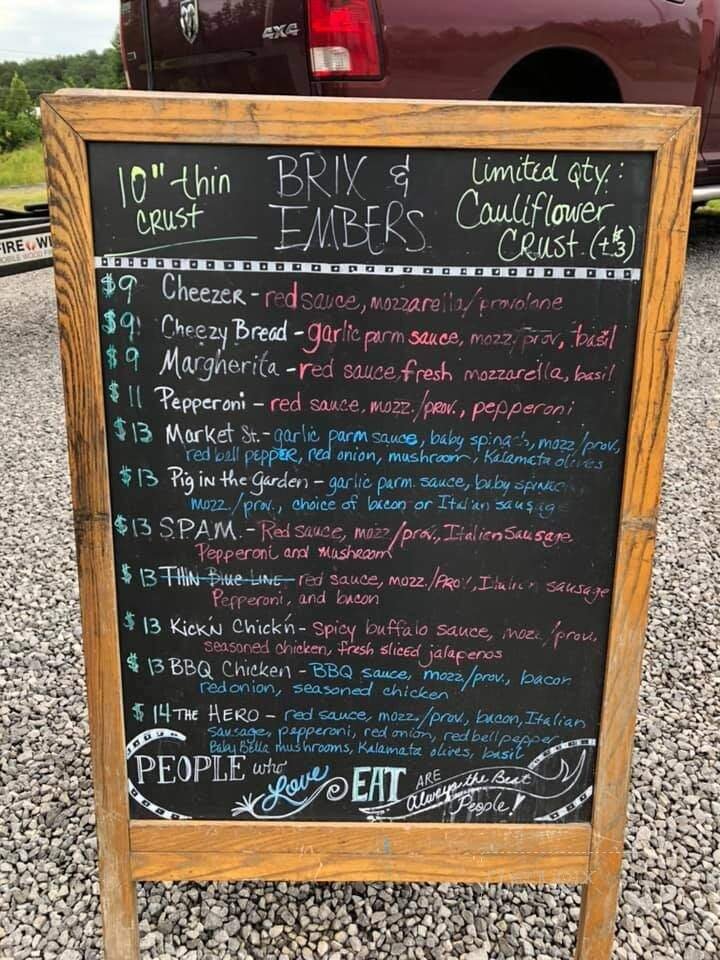 4X4
FIRE WI
MOBILE WOOD FI
10" thin
CRUST
BRIX &
EMBERS
Limited Qty.:
Cauliflower
CRUST. (+$3)
$9 Cheezer - red sauce, mozzarella/provolone
$9 Cheezy Bread - garlic parm sauce, mozz/prov, basil
$9 Margherita - red sauce, fresh mozzarella, basil
$11 Pepperoni - red sauce, mozz./prov., pepperoni
$13 Market St. - garlic parm sauce, baby spinach, mozz/prov,
red bell pepper, red onion, mushroom, Kalamata olives
$13 Pig in the Garden - garlic parm. sauce, baby spinac
mozz./prov., choice of bacon or Italian sausage
$13 S.P.A.M. - Red sauce, mozz/prov, Italian Sausage
Pepperoni and Mushroom
$13 THIN Blue LINE - red sauce, mozz./PROV, Italian sausage
Pepperoni, and bacon
$13 Kick'N Chick'n - Spicy buffalo sauce, mozz/prov.
seasoned chicken, fresh sliced jalapenos
$13 BBQ Chicken - BBQ sauce, mozz/prov., bacon
red onion, seasoned chicken
$14 THE HERO - red sauce, mozz./prov, bacon, Italian
sausage, pepperoni, red onion, red bell pepper,
Baby Bella mushrooms, Kalamata olives, basil
PEOPLE who Love EAT ARE Always the Best
People!